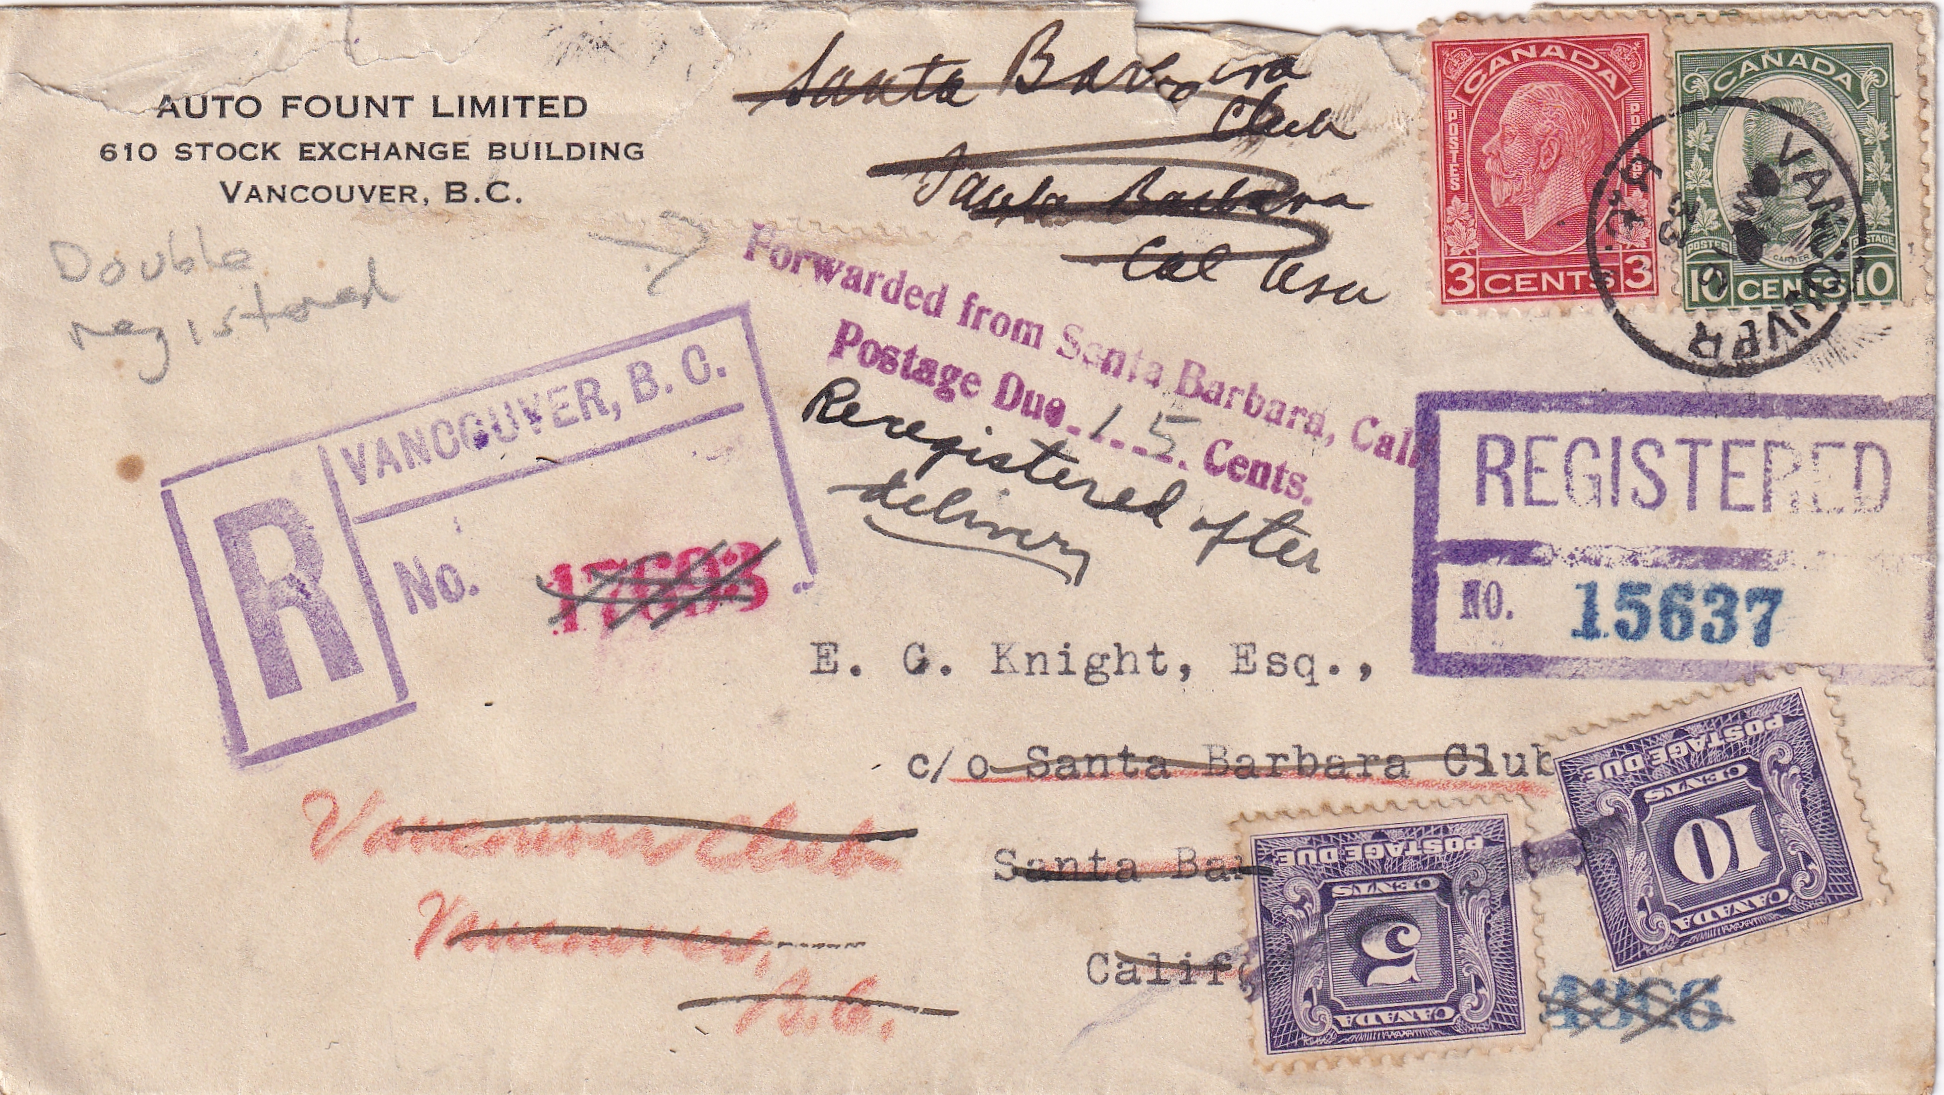 AUTO FOUNT LIMITED
610 STOCK EXCHANGE BUILDING
VANCOUVER, B.C.
Santa Barbara
Club
Santa Barbara
Cal Usa
CANADA
POSTES
POSTAGE
3 CENTS 3
CANADA
POSTES
CARTIER
POSTAGE
10 CENTS 10
VANCOUVER
33
Double
registered
Forwarded from Santa Barbara, Cal
Postage Due 15 Cents.
Reregistered after
delivery
R
VANCOUVER, B. C.
No. 17693
REGISTERED
NO. 15637
E. G. Knight, Esq.,
c/o Santa Barbara Club
Santa Bar
Calif
Vancouver Club
Vancouver,
B.C.
POSTAGE DUE
CENTS
10
CANADA
POSTAGE DUE
CENTS
5
CANADA